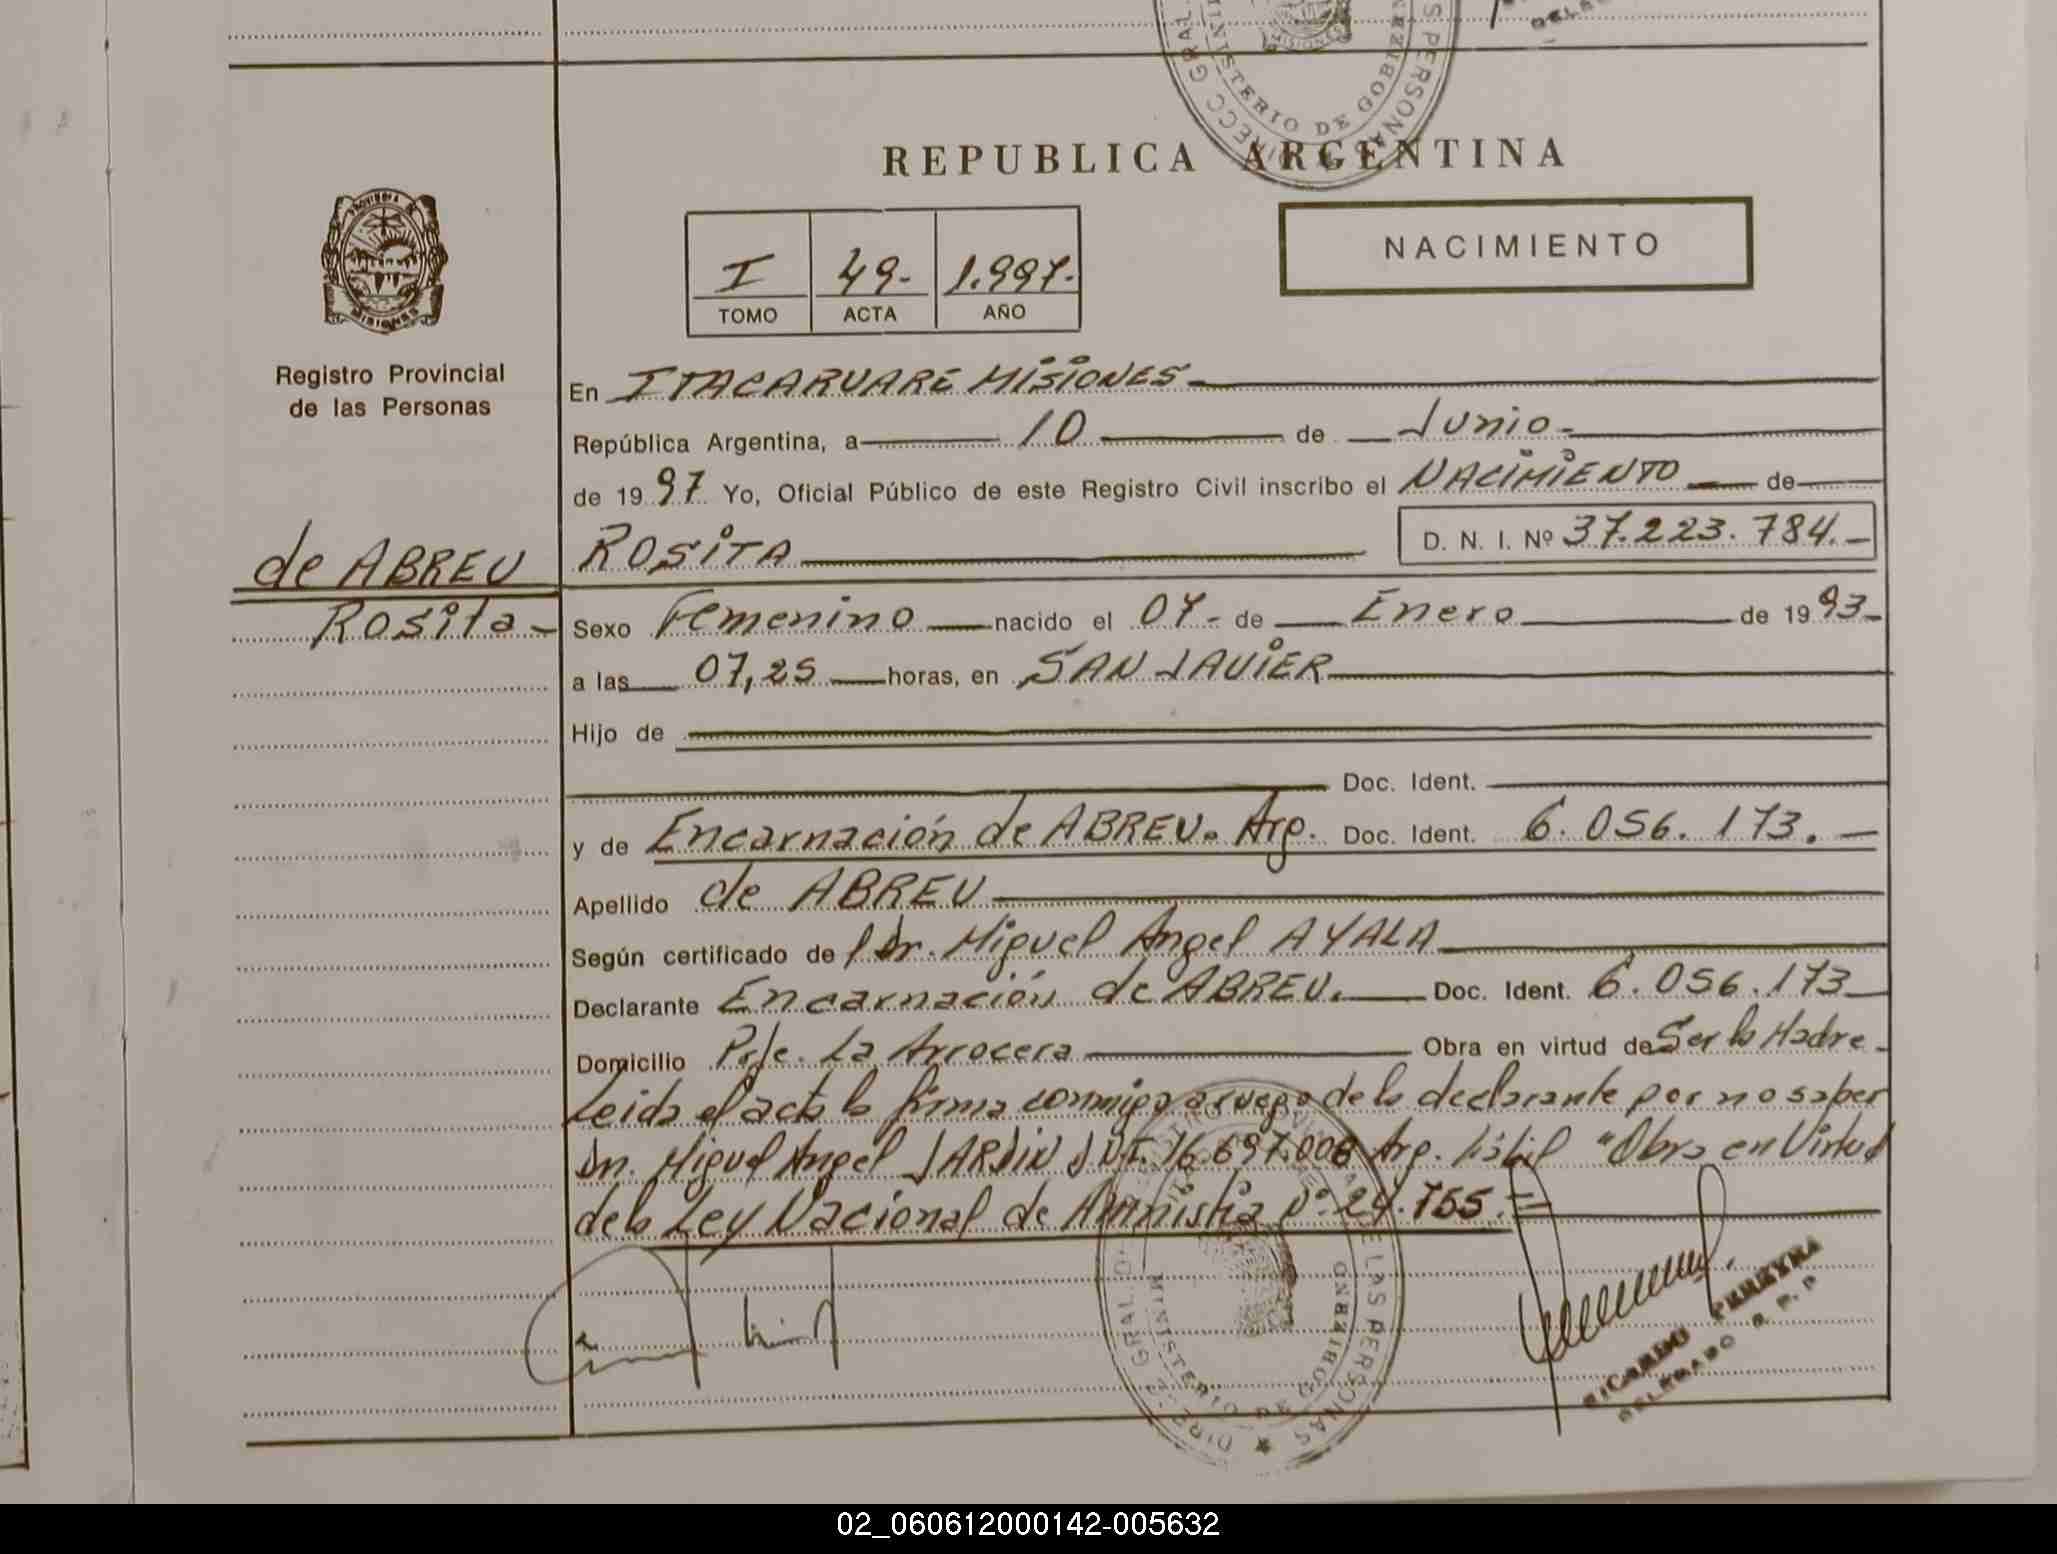 REPUBLICA ARGENTINA
MINISTERIO DE GOBIERNO
MISIONES
NACIMIENTO
I 49.- 1.997.-
TOMO ACTA AÑO
PROVINCIA DE
MISIONES
Registro Provincial
de las Personas
de ABREU
Rosita -
En ITACARUARE MISIONES
República Argentina, a 10 de Junio -
de 1997 Yo, Oficial Público de este Registro Civil inscribo el NACIMIENTO de
ROSITA D. N. I. Nº 37.223.784.-
Sexo Femenino nacido el 07 - de Enero de 1993-
a las 07,25 horas, en SAN JAVIER
Hijo de
Doc. Ident.
y de Encarnación de ABREU. Arg. Doc. Ident. 6.056.173.-
Apellido de ABREU
Según certificado de Dr. Miguel Angel AYALA
Declarante Encarnación de ABREU. Doc. Ident. 6.056.173
Domicilio Pje. La Arrocera Obra en virtud de Ser la Madre -
Leida el acta la firma conmigo a ruego de la declarante por no saber
Dn. Miguel Angel JARDIN DNI. 16.697.006 Arg. Hábil "Obra en Virtud
de la Ley Nacional de Amnistia Nº 24.755.=
MINISTERIO DE GOBIERNO
RICARDO PEREYRA
DELEGADO R. P. P.
02_060612000142-005632